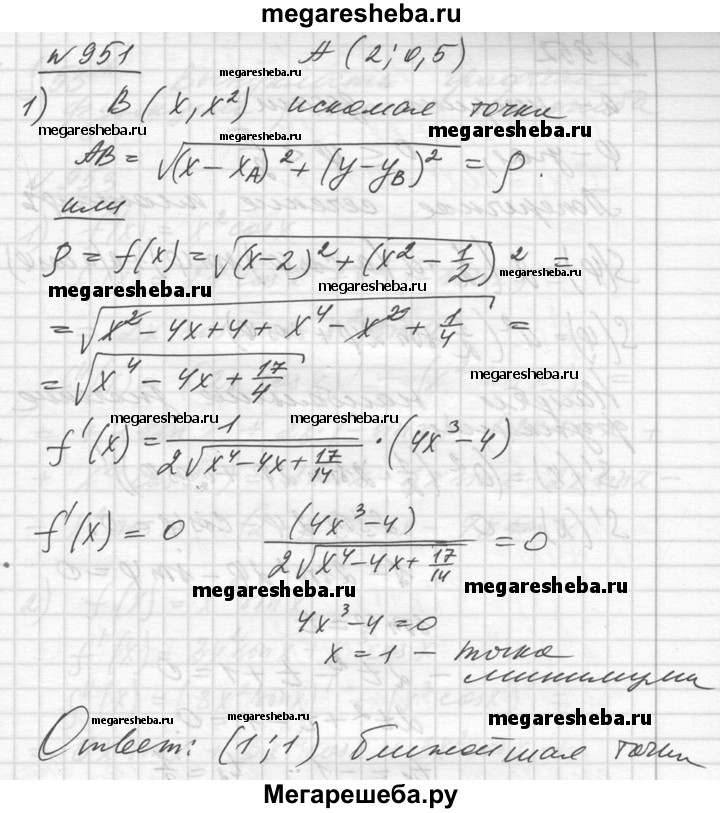 megaresheba.ru
№ 951 A (2; 0,5)
megaresheba.ru
1) B (x, x²) искомая точка
megaresheba.ru megaresheba.ru megaresheba.ru
AB = √(x - x_A)² + (y - y_B)² = ρ.
или
ρ = f(x) = √(x-2)² + (x² - 1/2)² =
megaresheba.ru megaresheba.ru megaresheba.ru
= √x² - 4x + 4 + x⁴ - x² + 1/4 =
= √x⁴ - 4x + 17/4
megaresheba.ru
megaresheba.ru megaresheba.ru
f'(x) = 1/(2√x⁴ - 4x + 17/14) · (4x³ - 4)
f'(x) = 0 (4x³ - 4)/(2√x⁴ - 4x + 17/14) = 0
megaresheba.ru megaresheba.ru
4x³ - 4 = 0
x = 1 – точка
минимума
megaresheba.ru megaresheba.ru megaresheba.ru
Ответ: (1; 1) ближайшая точка
Мегарешеба.ру